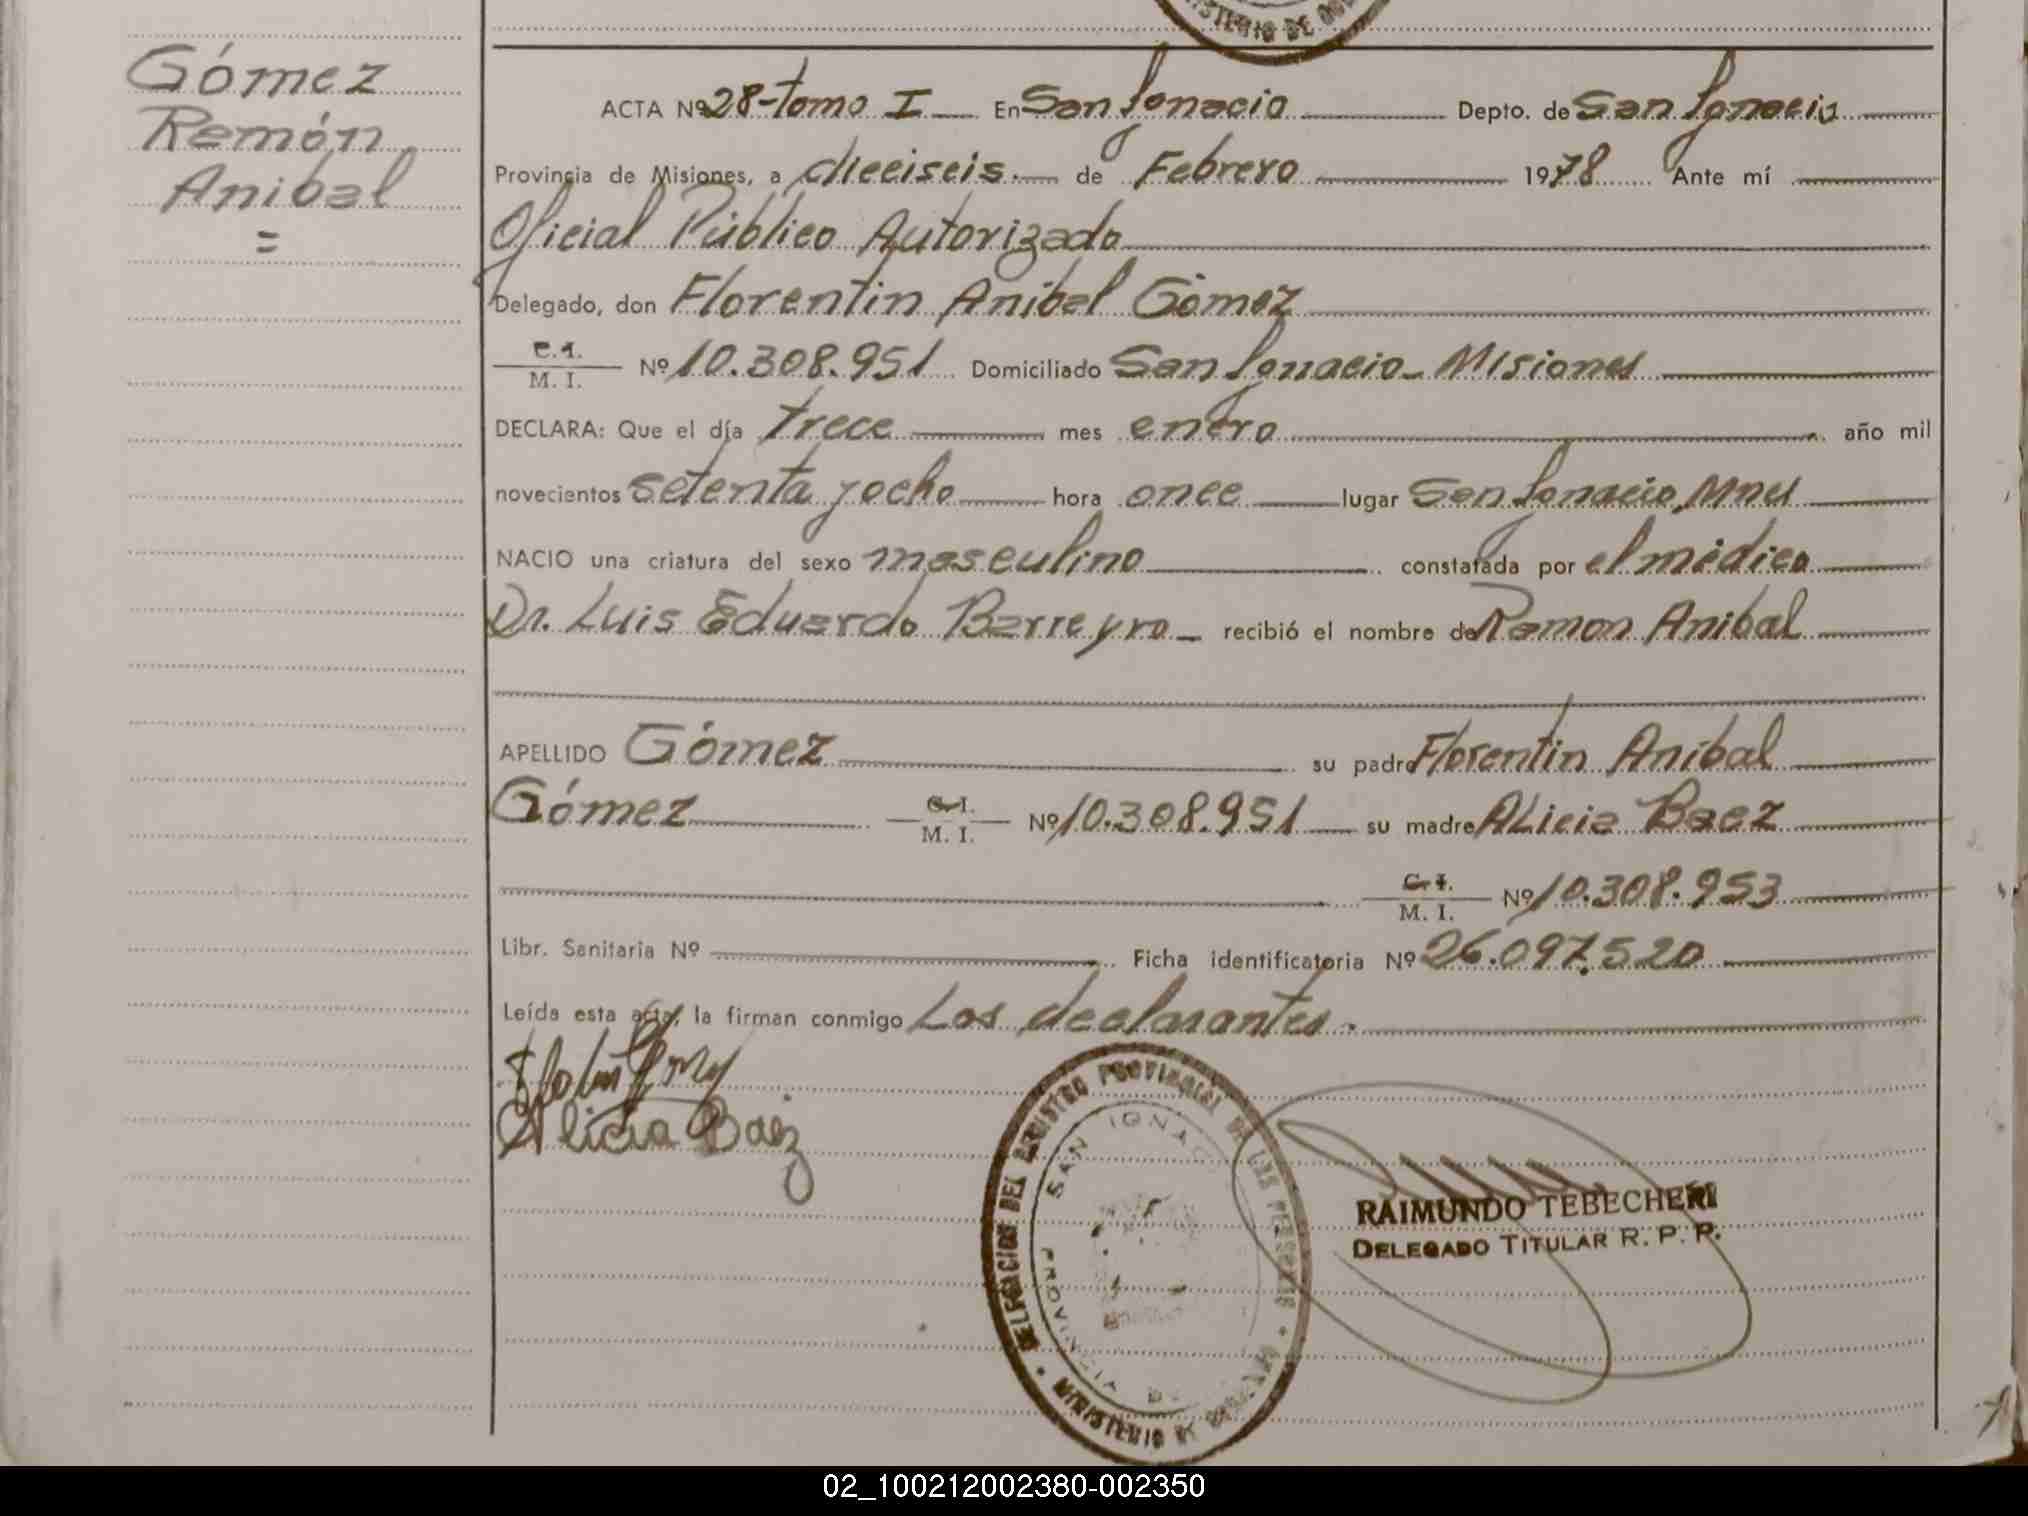 Gómez
Ramón
Anibal
=
ISTERIO DE GOB
ACTA Nº 28-tomo I En San Ignacio Depto. de San Ignacio
Provincia de Misiones, a dieciseis. de Febrero 1978 Ante mí
Oficial Público Autorizado
Delegado, don Florentin Anibal Gómez
C.I.
M. I. Nº 10.308.951 Domiciliado San Ignacio- Misiones
DECLARA: Que el día trece mes enero año mil
novecientos setenta y ocho hora once lugar San Ignacio, Mnes
NACIO una criatura del sexo masculino constatada por el médico
Dr. Luis Eduardo Barreyro recibió el nombre de Ramon Anibal
APELLIDO Gómez su padre Florentin Anibal
Gómez C.I.
M. I. Nº 10.308.951 su madre Alicia Baez
C.I.
M. I. Nº 10.308.953
Libr. Sanitaria Nº Ficha identificatoria Nº 26.097.520
Leída esta acta, la firman conmigo Los declarantes.
Alicia Baez
DELEGACION DEL REGISTRO PROVINCIAL DE LAS PERSONAS
SAN IGNAC
PROVINCIA DE
MINISTERIO DE
RAIMUNDO TEBECHERI
DELEGADO TITULAR R. P. P.
02_100212002380-002350